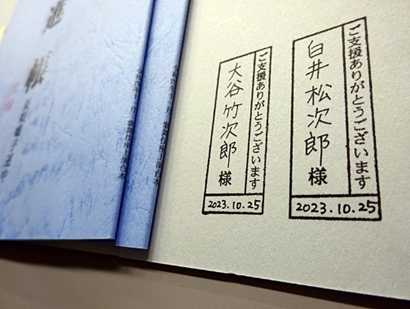 進帳
ご支援ありがとうございます
白井松次郎様
2023.10.25
ご支援ありがとうございます
大谷竹次郎様
2023.10.25